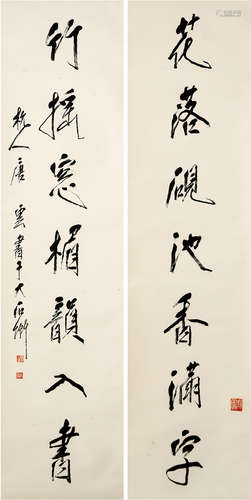 花落硯池香滿字
竹搖窓楣韻入書
杭人唐雲書于大石齋